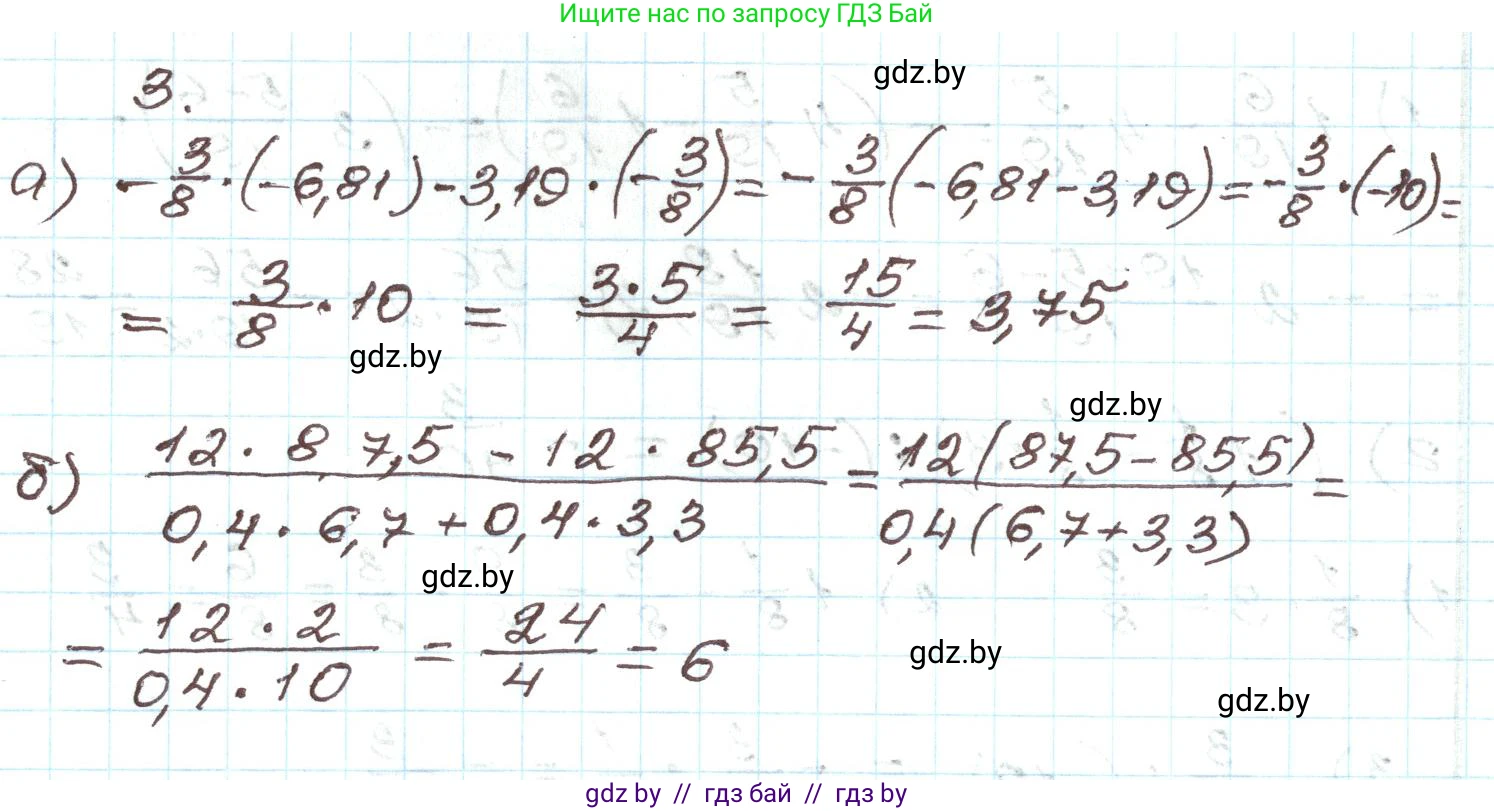 Ищите нас по запросу ГДЗ Бай
gdz.by
3.
а) -3/8·(-6,81)-3,19·(-3/8)=-3/8(-6,81-3,19)=-3/8·(-10)=
= 3/8·10 = 3·5/4 = 15/4 = 3,75
gdz.by
gdz.by
б) 12·87,5-12·85,5/0,4·6,7+0,4·3,3=12(87,5-85,5)/0,4(6,7+3,3)=
gdz.by
= 12·2/0,4·10 = 24/4 = 6
gdz.by
gdz.by
gdz by // гдз бай // гдз by